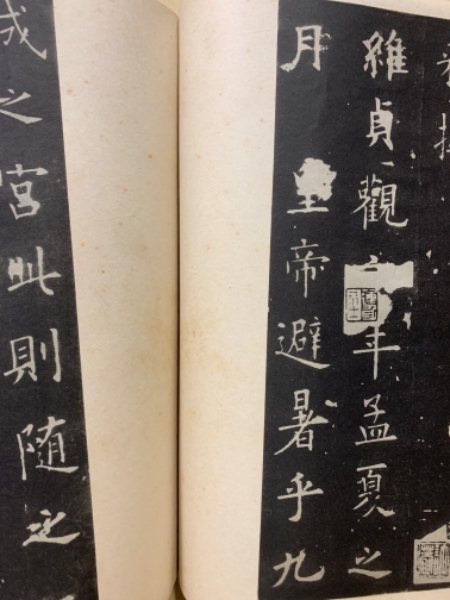 維貞觀年孟夏之
月 皇帝避暑乎九
成之宮此則隨之